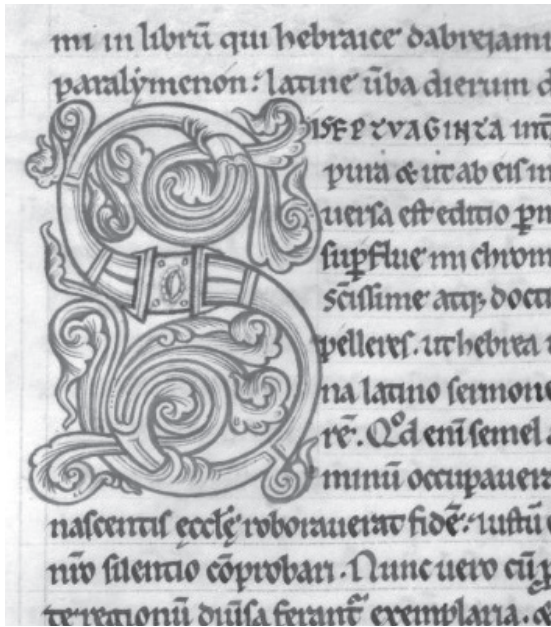 mi in librū qui hebraice dabrejami
paralẏmenon: latine ūba dierum d
SISEPTVAGINTA int
pura & ut ab eis in
uersa est editio ꝑm
suꝑflue mi chrom
sc̄issime atq; docti
pelleres. ut hebrea u
na latino sermone
rē. Qd̊ enī semel a
minū occupauera
nascentis ęcclę̄ roborauerat fidē: iustū e
nr̄o silentio cōprobari. Nunc uero cū ꝑ
te regionū diuisa ferant᷑ exemplaria. &